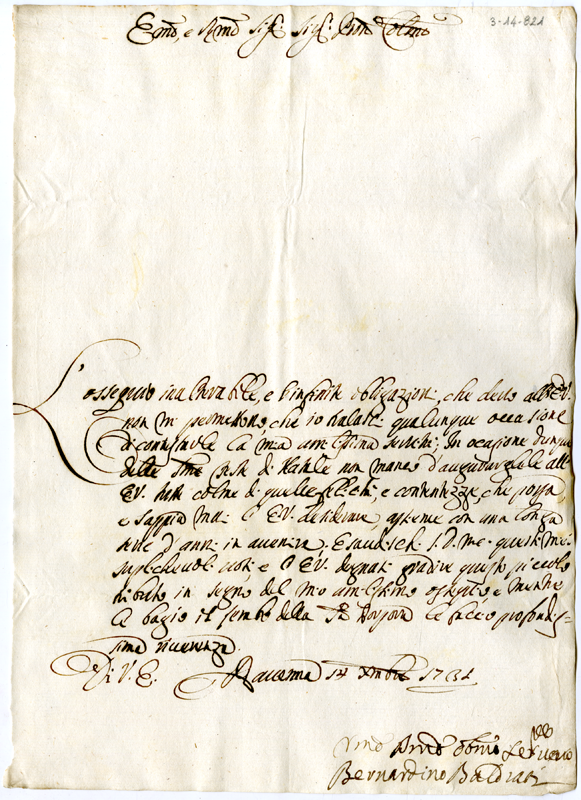 3-14-821
Emo, e Rmo Sig.r Sig.r Pron Colmo
L'ossequio inalterabile, e l'infinite obligazioni, che devo all'E.V.
non mi permettono, che io tralasci qualunque occasione
di continuarle la mia umilissima servitù; In ocasione dunque
delle Feste di Natale non manco d'augurarle all'
E.V. colme di quelle felicità, e contentezze, che possa,
e sappia mai l'E.V. desiderare, assieme con una longa
serie d'anni in avenire. Esaudisca I.D. questi miei
voti, e l'E.V. degnasi gradire questo piccolo
tributo in segno del mio umilissimo ossequio, e mentre
le bagio il lembo della le faccio profondis-
sima riverenza.
Di V.E. Ravenna 14 Xmbre 1731
Umo Devmo Obmo Servitore
Bernardino